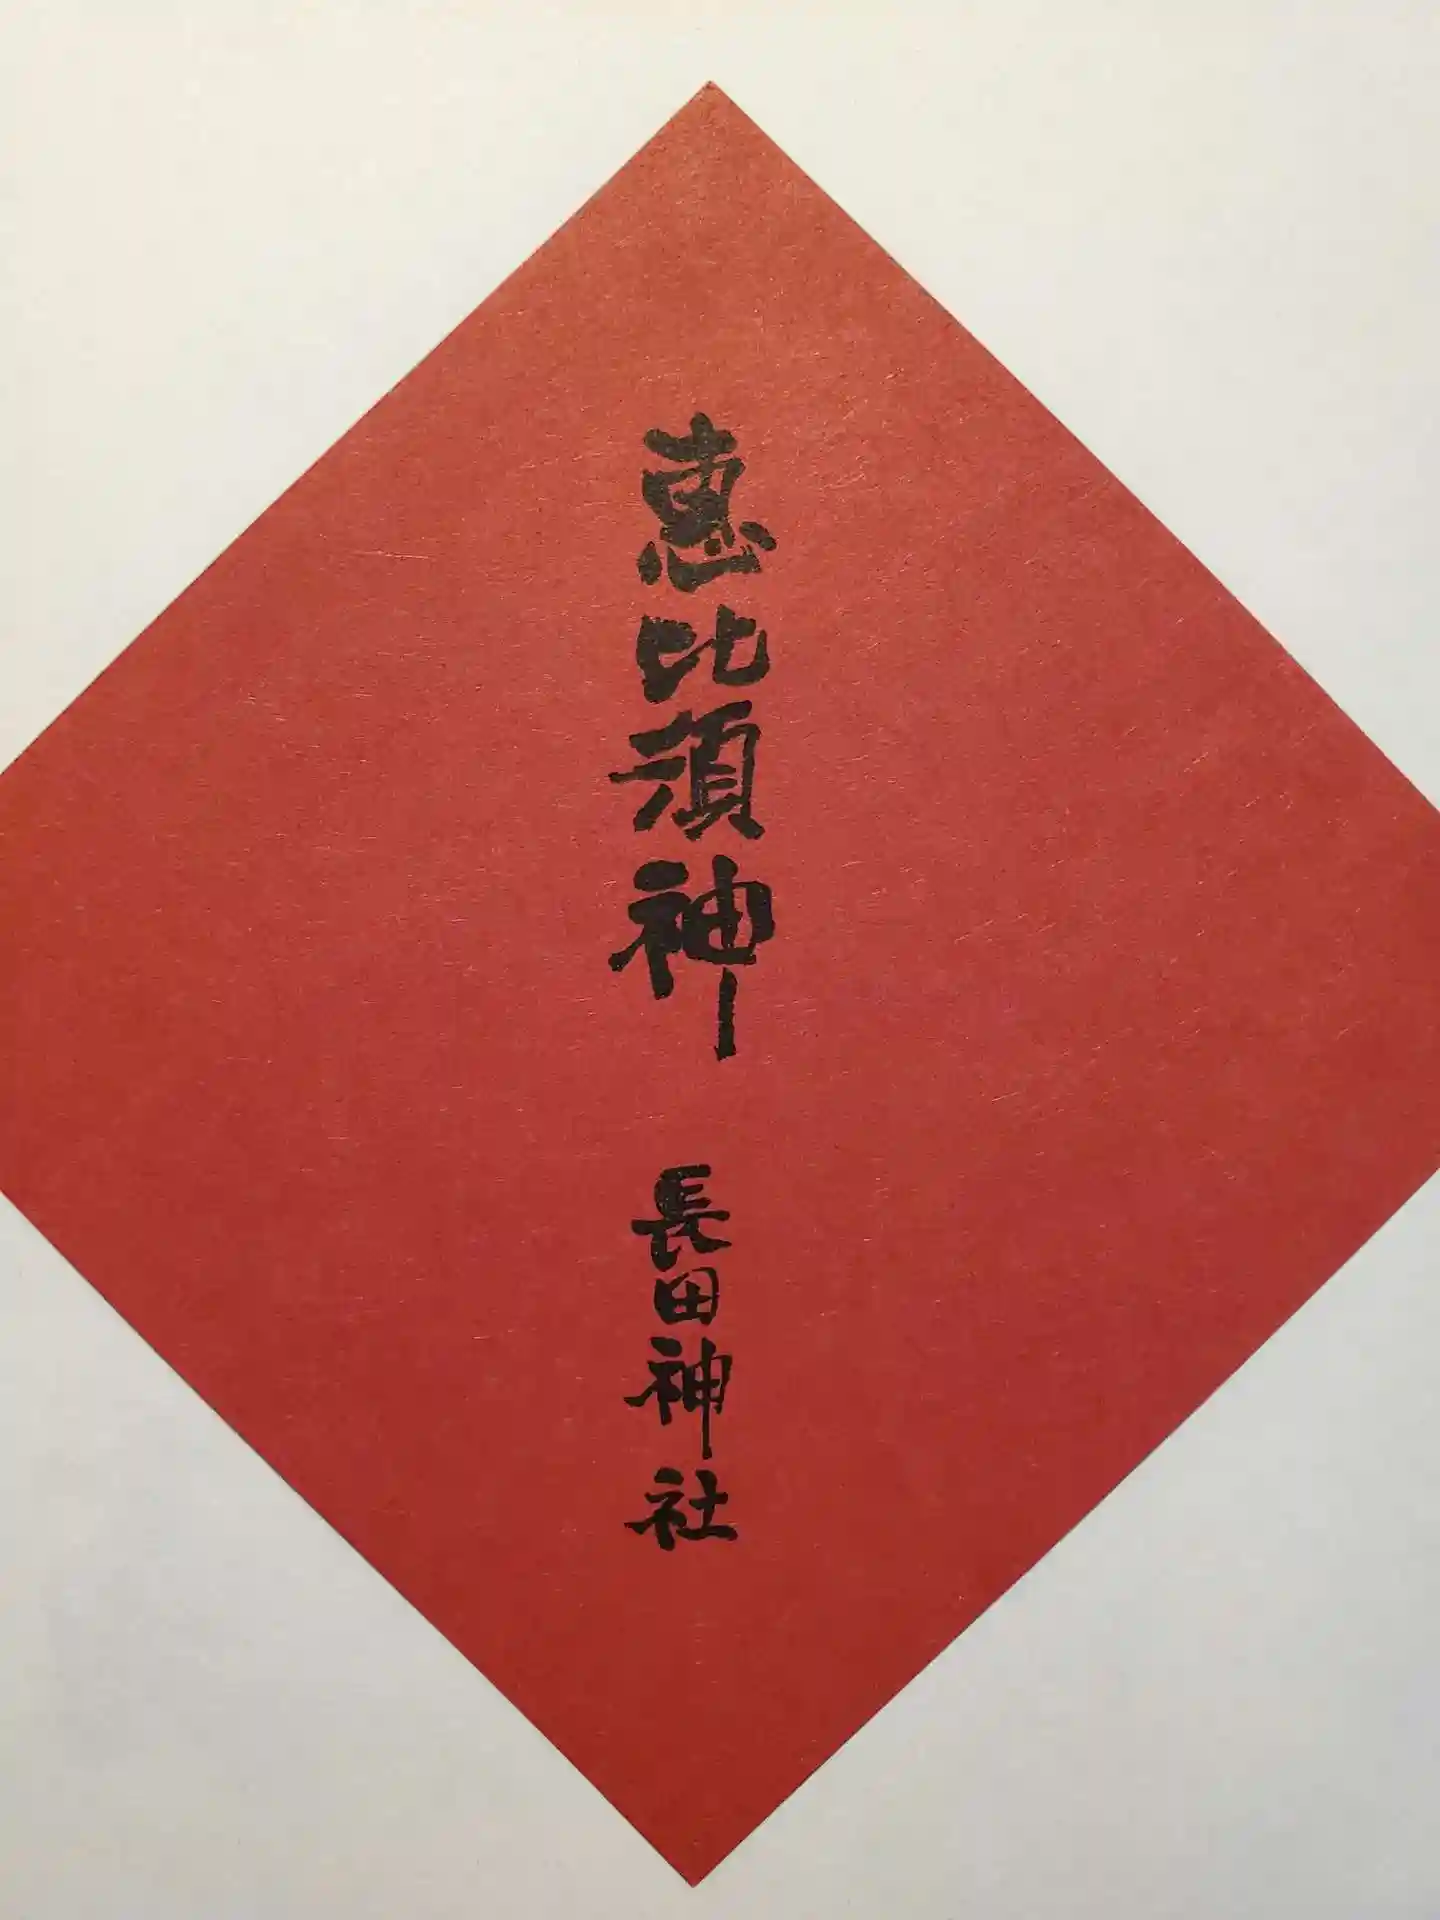 恵比須神
長田神社